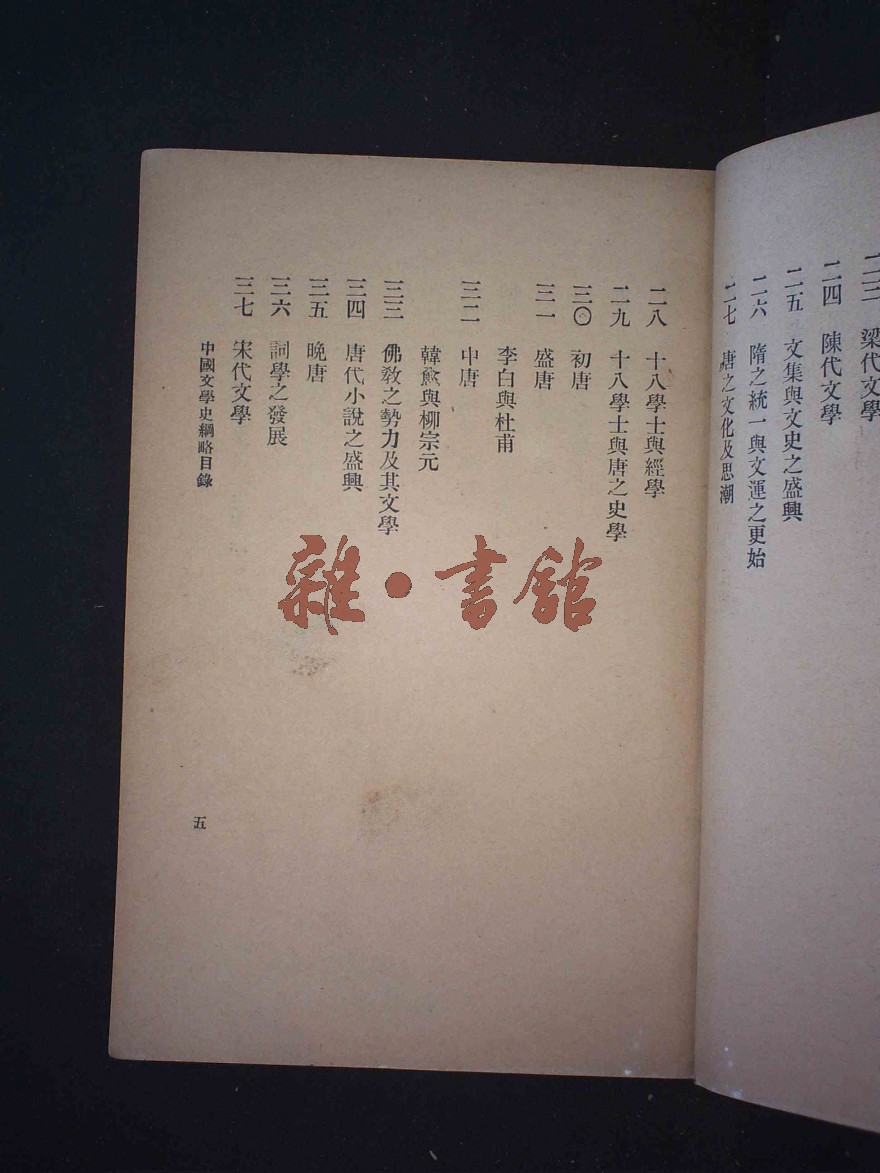 二三 梁代文學
二四 陳代文學
二五 文集與文史之盛興
二六 隋之統一與文運之更始
二七 唐之文化及思潮
二八 十八學士與經學
二九 十八學士與唐之史學
三〇 初唐
三一 盛唐
李白與杜甫
三二 中唐
韓愈與柳宗元
三三 佛敎之勢力及其文學
三四 唐代小說之盛興
三五 晚唐
三六 詞學之發展
三七 宋代文學
中國文學史綱略目錄
五
雜·書館